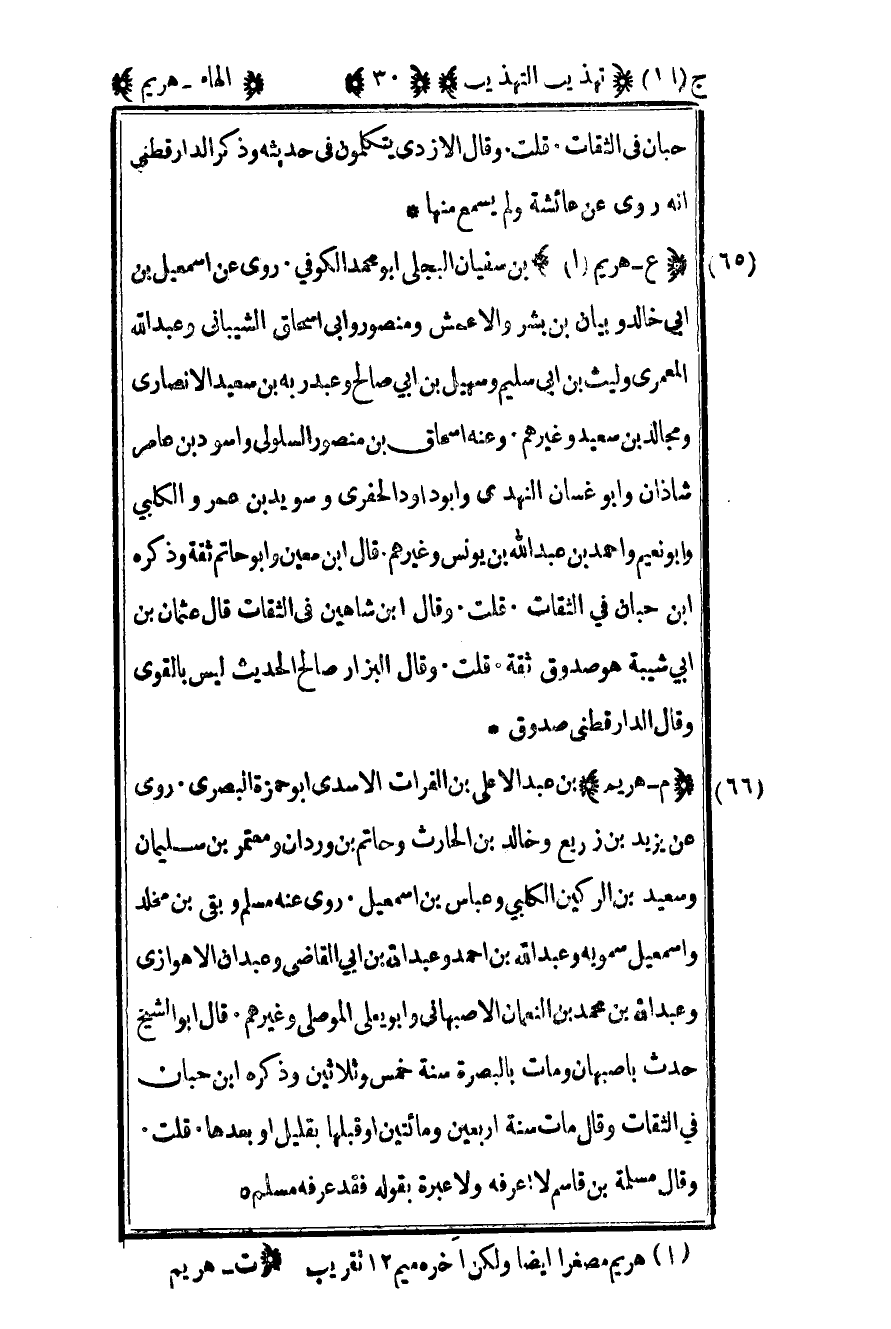 ج (١١) ﴿ تهذيب التهذيب ﴾ ﴿ ٣٠ ﴾ ﴿ الهاء ـ هريم ﴾
حبان فى الثقات ٠ قلت ٠ وقال الازدى يتكلمون فى حديثه وذكر الدارقطنى
انه روى عن عائشة ولم يسمع منها *
(٦٥) ﴿ ع ـ هريم (١) ﴾ بن سفيان البجلى ابو محمد الكوفي ٠ روى عن اسمعيل بن
ابي خالد و بيان بن بشر والاعمش ومنصور وابى اسحاق الشيبانى وعبدالله
المعمرى وليث بن ابى سليم وسهيل بن ابي صالح وعبدر به بن سعيد الانصارى
ومجالد بن سعيد وغيرهم ٠ وعنه اسحاق بن منصور السلولى واسود بن عامر
شاذان وابو غسان النهدى وابوداود الحفرى و سويد بن عمر و الكلبي
وابونعيم واحمد بن عبدالله بن يونس وغيرهم ٠ قال ابن معين وابو حاتم ثقة وذكره
ابن حبان في الثقات ٠ قلت ٠ وقال ابن شاهين فى الثقات قال عثمان بن
ابي شيبة هو صدوق ثقة ٠ قلت ٠ وقال البزار صالح الحديث ليس بالقوى
وقال الدارقطنى صدوق *
(٦٦) ﴿ م ـ هريم ﴾ بن عبدالاعلى بن الفرات الاسدى ابو حمزة البصرى ٠ روى
عن يزيد بن زريع وخالد بن الحارث وحاتم بن وردان ومعتمر بن سليمان
وسعيد بن الركين الكلبي وعباس بن اسمعيل ٠ روى عنه مسلم و بقى بن مخلد
واسمعيل سمويه وعبدالله بن احمد وعبدالله بن ابي القاضى وعبدان الاهوازى
وعبدالله بن محمد بن النعمان الاصبهانى وابو يعلى الموصلى وغيرهم ٠ قال ابو الشيخ
حدث باصبهان ومات بالبصرة سنة خمس وثلاثين وذكره ابن حبان
في الثقات وقال مات سنة اربعين ومائتين او قبلها بقليل او بعدها ٠ قلت ٠
وقال مسلمة بن قاسم لا اعرفه ولا عبرة بقوله فقد عرفه مسلم ٥
(١) هريم مصغرا ايضا ولكن آخره ميم ١٢ تقريب ﴿ ت ـ هريم